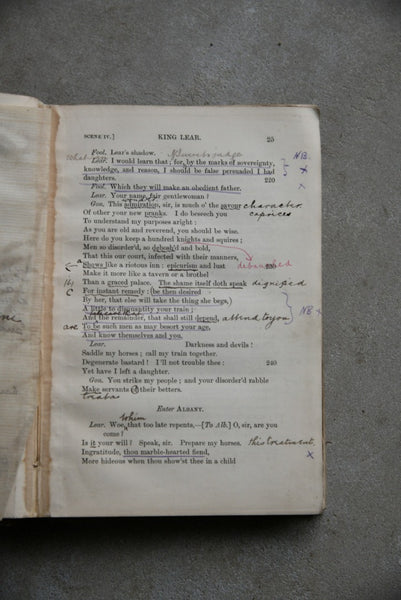 SCENE IV.] KING LEAR. 25
Fool. Lear's shadow.
Lear. I would learn that; for, by the marks of sovereignty, NB
knowledge, and reason, I should be false persuaded I had x
daughters. 220
Fool. Which they will make an obedient father. x
Lear. Your name, fair gentlewoman?
Gon. This admiration, sir, is much o' the savour character
Of other your new pranks. I do beseech you caprices
To understand my purposes aright:
As you are old and reverend, you should be wise.
Here do you keep a hundred knights and squires;
Men so disorder'd, so debosh'd and bold,
That this our court, infected with their manners,
Shows like a riotous inn: epicurism and lust 230 debauched
Make it more like a tavern or a brothel
Than a graced palace. The shame itself doth speak dignified
For instant remedy: (be then desired
By her, that else will take the thing she begs,) NB x
A little to disquantity your train;
And the remainder, that shall still depend, attend to you
are To be such men as may besort your age,
And know themselves and you.
Lear. Darkness and devils!
Saddle my horses; call my train together.
Degenerate bastard! I'll not trouble thee: 240
Yet have I left a daughter.
Gon. You strike my people; and your disorder'd rabble
Make servants of their betters.
Enter ALBANY.
to him
Lear. Woe, that too late repents,—[To Alb.] O, sir, are you
come?
Is it your will? Speak, sir. Prepare my horses.
Ingratitude, thou marble-hearted fiend, x
More hideous when thou show'st thee in a child